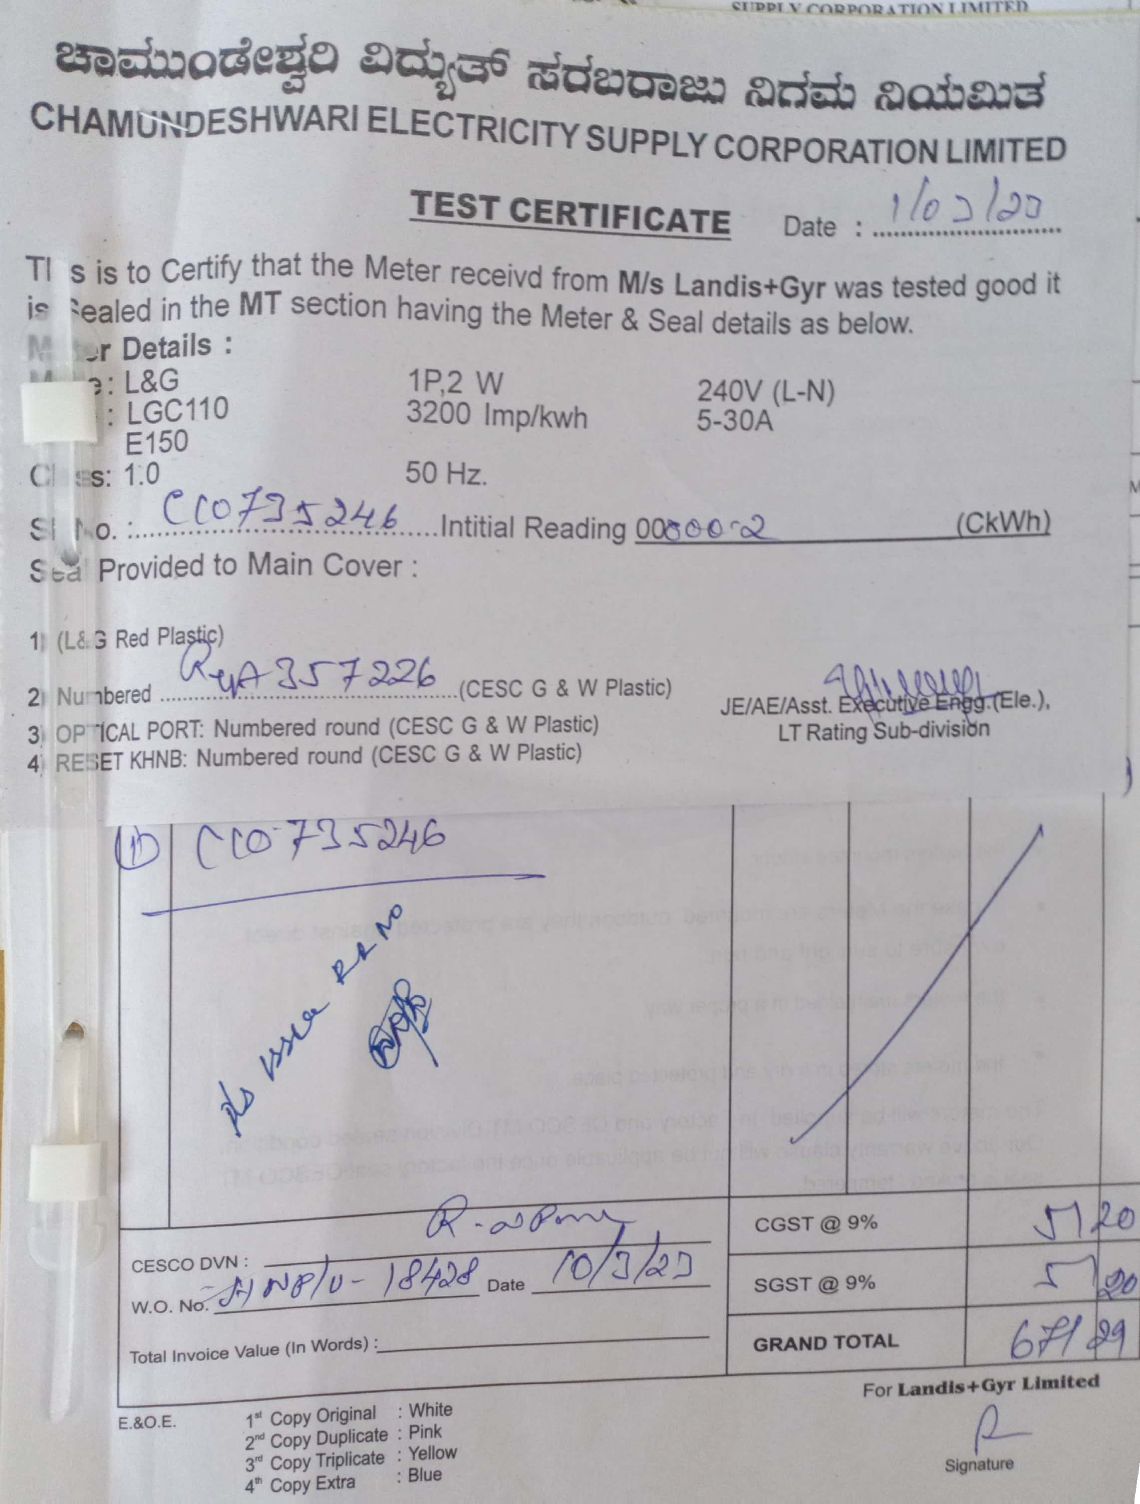 SUPPLY CORPORATION LIMITED
ಚಾಮುಂಡೇಶ್ವರಿ ವಿದ್ಯುತ್ ಸರಬರಾಜು ನಿಗಮ ನಿಯಮಿತ
CHAMUNDESHWARI ELECTRICITY SUPPLY CORPORATION LIMITED
TEST CERTIFICATE Date : 1/03/23
This is to Certify that the Meter receivd from M/s Landis+Gyr was tested good it
is Sealed in the MT section having the Meter & Seal details as below.
Meter Details :
: L&G 1P,2 W 240V (L-N)
: LGC110 3200 Imp/kwh 5-30A
E150
Class: 1.0 50 Hz.
Sl No. : CC0735246 Intitial Reading 000000.2 (CkWh)
Seal Provided to Main Cover :
1) (L&G Red Plastic)
2) Numbered 357226 (CESC G & W Plastic)
JE/AE/Asst. Executive Engg.(Ele.),
3) OPTICAL PORT: Numbered round (CESC G & W Plastic)
LT Rating Sub-division
4) RESET KHNB: Numbered round (CESC G & W Plastic)
1) CC0735246
RR NO
CGST @ 9% 51 20
CESCO DVN :
SGST @ 9% 51 20
W.O. No. 18428 Date 10/3/23
Total Invoice Value (In Words) :
GRAND TOTAL 671 29
For Landis+Gyr Limited
E.&O.E.
1st Copy Original : White
2nd Copy Duplicate : Pink
3rd Copy Triplicate : Yellow
4th Copy Extra : Blue
Signature